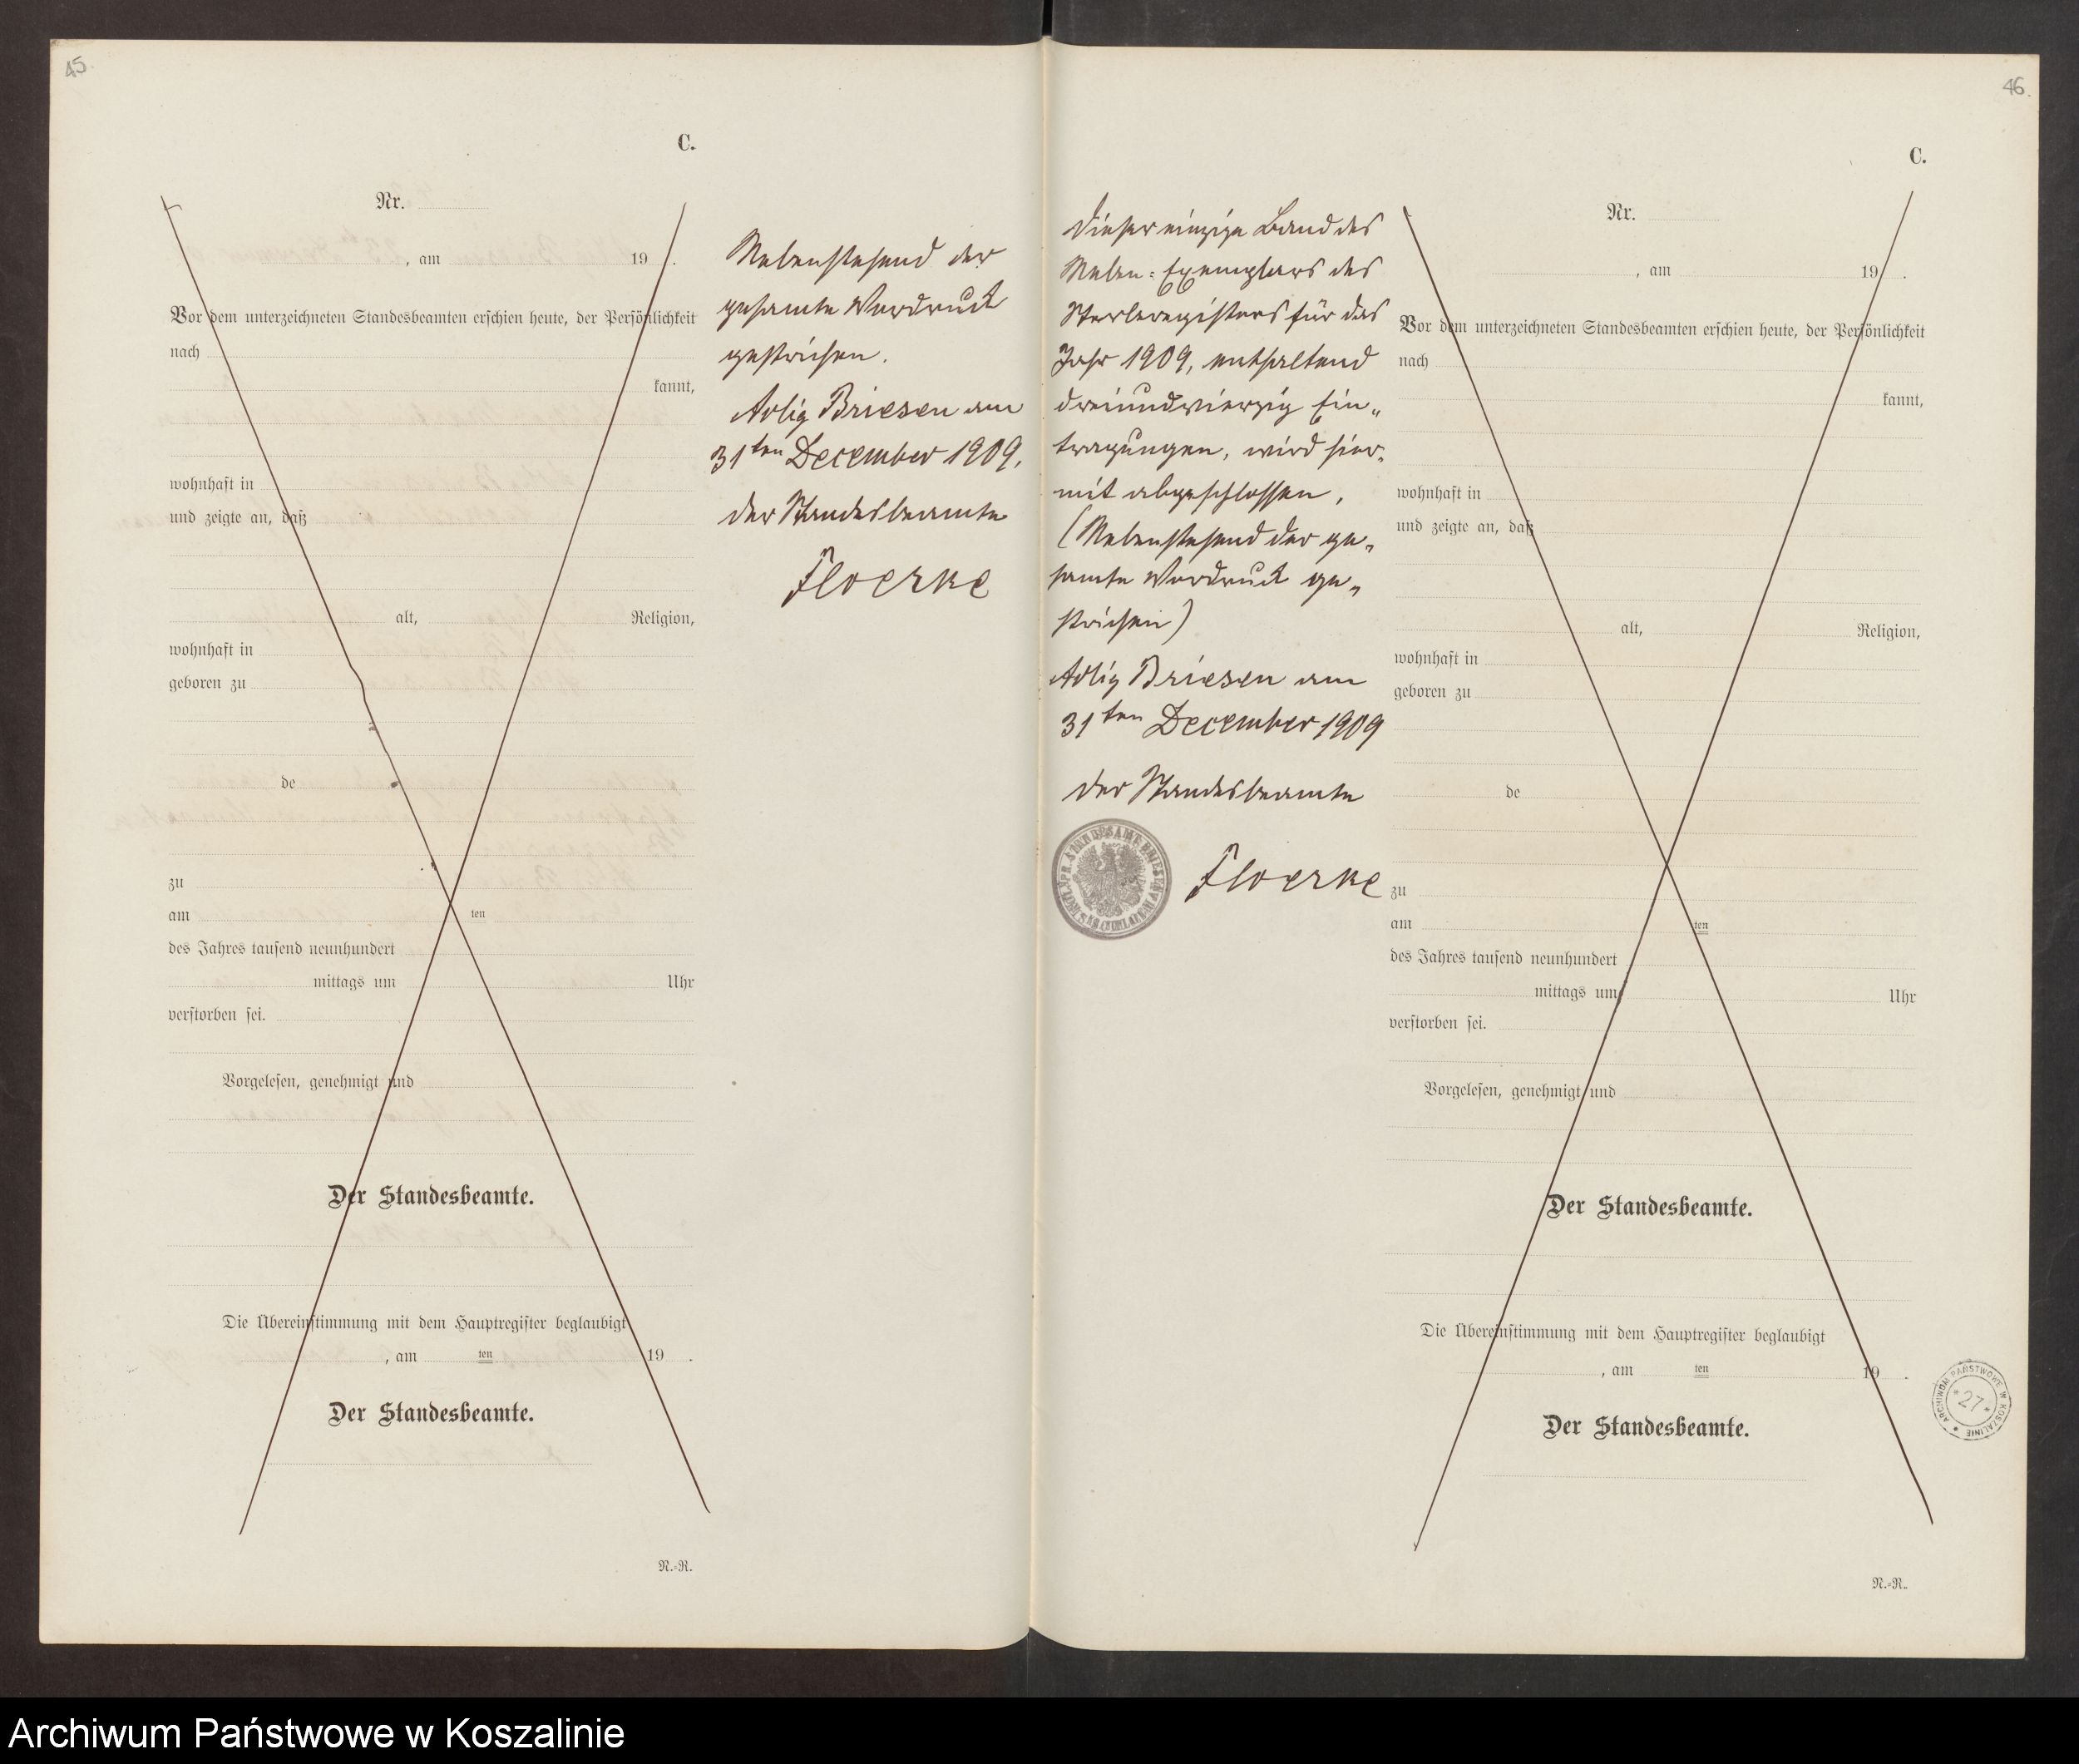 45
C.
Nr.
, am 19 .
Vor dem unterzeichneten Standesbeamten erschien heute, der Persönlichkeit
nach
kannt,
wohnhaft in
und zeigte an, daß
alt, Religion,
wohnhaft in
geboren zu
de
zu
am ten
des Jahres tausend neunhundert
mittags um Uhr
verstorben sei.
Vorgelesen, genehmigt und
Der Standesbeamte.
Die Übereinstimmung mit dem Hauptregister beglaubigt
, am ten 19 .
Der Standesbeamte.
N.-R.
Nebenstehend der
gesamte Vordruck
gestrichen.
Adlig Briesen am
31ten December 1909.
der Standesbeamte
Floerke
46.
C.
Dieser einzige Band des
Neben-Exemplars des
Sterberegisters für das
Jahr 1909, enthaltend
dreiundvierzig Ein„
tragungen, wird hier„
mit abgeschlossen.
(Nebenstehend der ge„
samte Vordruck ge„
strichen)
Adlig Briesen am
31ten December 1909
der Standesbeamte
Floerke
Nr.
, am 19 .
Vor dem unterzeichneten Standesbeamten erschien heute, der Persönlichkeit
nach
kannt,
wohnhaft in
und zeigte an, daß
alt, Religion,
wohnhaft in
geboren zu
de
zu
am ten
des Jahres tausend neunhundert
mittags um Uhr
verstorben sei.
Vorgelesen, genehmigt und
Der Standesbeamte.
Die Übereinstimmung mit dem Hauptregister beglaubigt
, am ten 19 .
Der Standesbeamte.
N.-R.
ARCHIWUM PAŃSTWOWE W KOSZALINIE
27
Archiwum Państwowe w Koszalinie